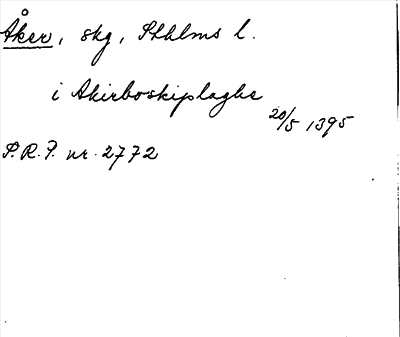 Åker, skg, Sthlms l.
i Akirboskiplaghe
20/5 1395
S.R.P. nr. 2772